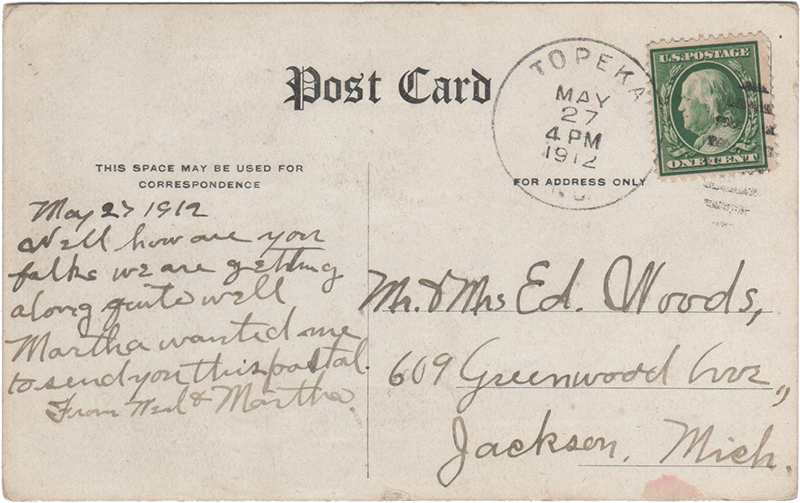 Post Card
TOPEKA
MAY
27
4 PM
1912
U.S. POSTAGE
ONE CENT
THIS SPACE MAY BE USED FOR
CORRESPONDENCE
FOR ADDRESS ONLY
May 27 1912
Well how are you
folks we are getting
along quite well
Martha wanted me
to send you this postal.
From & Martha.
Mr. & Mrs Ed. Woods,
609 Greenwood Ave,
Jackson, Mich.